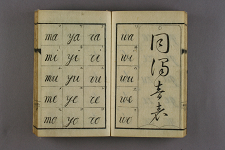 ma ya ra
mi yi ri
mu yu ru
me ye re
mo yo ro
wa
wi
wu
we
wo
同濁音表